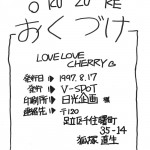 O KU ZU KE
おくづけ
LOVE LOVE
CHERRY
発行日 ▷ 1997.8.17
発行 ▷ V-SPOT
印刷所 ▷ 日光企画 様
連絡先 ▷ 〒120
足立区千住曙町
35-14
狐塚 直生